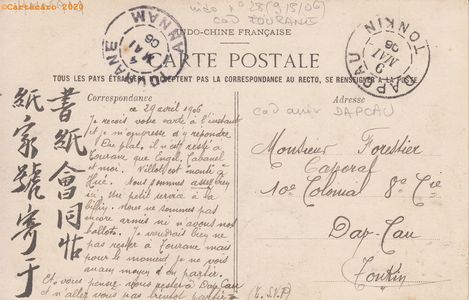 Cartskaro 2020
INDO-CHINE FRANÇAISE
CARTE POSTALE
TOUS LES PAYS ÉTRANGERS N'ACCEPTENT PAS LA CORRESPONDANCE AU RECTO, SE RENSEIGNER A LA POSTE
TOURANE ANNAM
4
MAI
06
DAPCAU TONKIN
9
MAI
06
cad TOURANE
cad arrivée DAPCAU
Correspondance
29 avril 1906
Je reçois votre carte à l'instant
et m'empresse d'y répondre.
Du plat, il n'est resté à
Tourane que Engel, Cabanel
et moi. Villot est monté à
Hué. Nous sommes assez bien
ici. Un petit service à la
Nous ne sommes pas
encore armés ni n'avons nos
ballots. Je voudrais bien ne
pas rester à Tourane mais
pour le moment je ne vois
aucun moyen d'en partir.
Et vous pensez-vous rester à Dap-Cau
et n'allez vous pas bientôt partir
Adresse
Monsieur Forestier
Caporal
10e Colonial 8e Cie
Dap-Cau
Tonkin
書紙會同帖
紙家號寄于